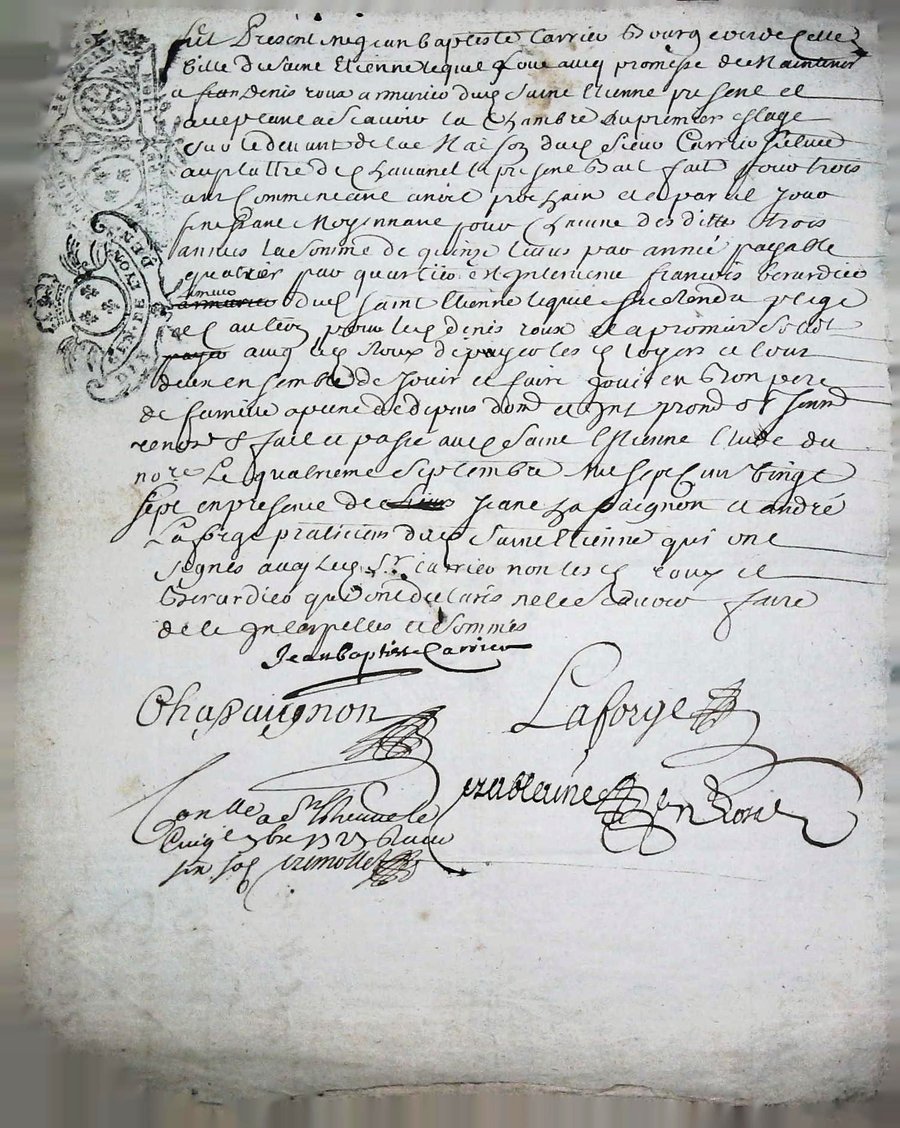 fut Present sieur Jean baptiste Carrier Bourgeois de cette
Ville de Saint Etienne lequel loue avec promesse de Maintenir
a Jean Denis roux armurier dud Saint Etienne present et
acceptant ascavoir la Chambre du premier estage
sur le devant de la Maison dud Sieur Carrier scituee
au plattre de Chavanel le present Bail fait pour trois
ans Commencant a noel prochain et a pareil Jour
finissant Moyennant pour Chacune des dittes trois
annees la somme de quinze livres par année payable
quartier par quartier est Intervenu françois berardier
armurier
armurier dud Saint Etienne lequel sest rendu plege
et caution pour led denis roux et a promis Solid
payer avec led Roux de payer les d loyers et tour
deux ensemble de Jouir et faire Jouir en Bon pere
de famille a peine de depens dom et Int prom ob soum
renon & fait et passé aud Saint Etienne Etude du
nore Le quatrieme Septembre Mil sept cent vingt
sept en presence de Jean Chapaignon et andré
Laforge praticiens dud Saint Etienne qui ont
signés avec led Sr Carrier non les d roux et
Berardier qui ont declarés ne le scavoir faire
de ce Interpelles et Sommés
Jean baptiste Carrier
Chapaignon Laforge
Conlle a St Etienne le
1727 Receu
six sols